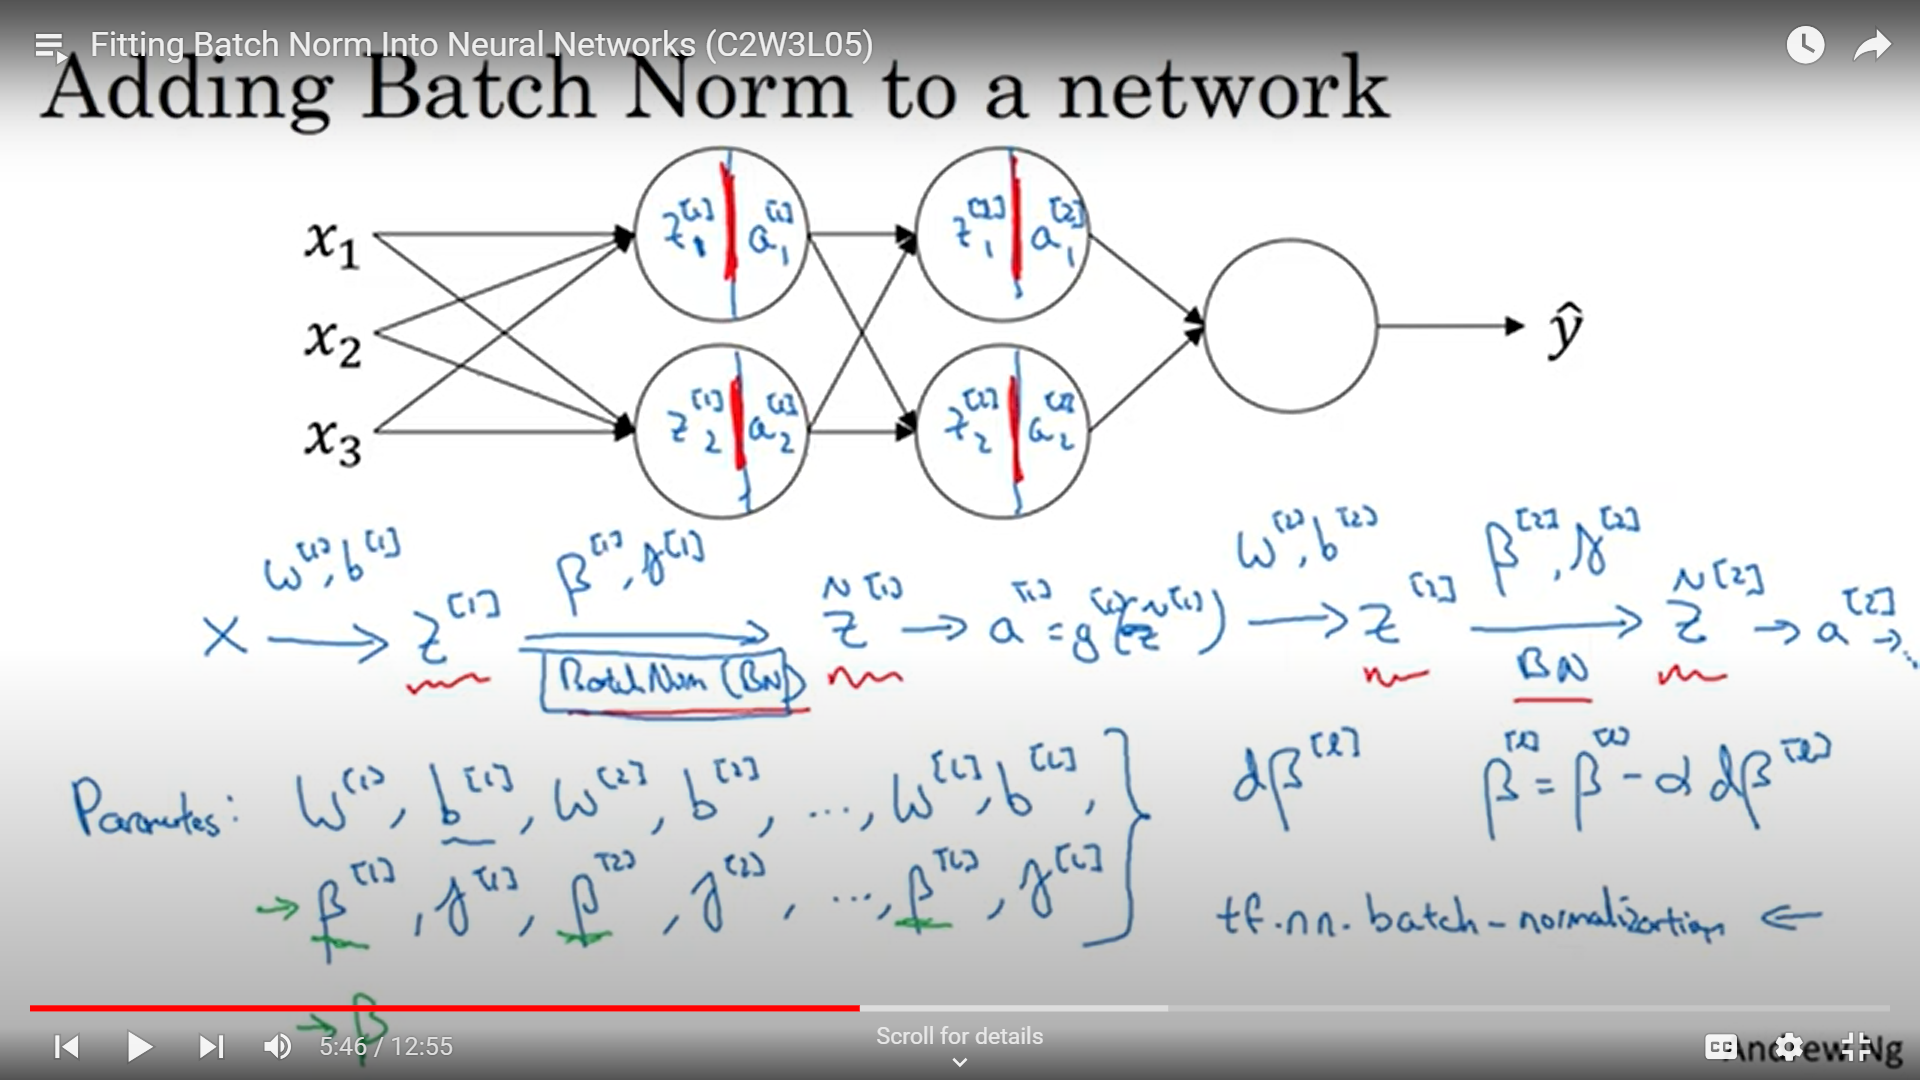 Fitting Batch Norm Into Neural Networks (C2W3L05)
Adding Batch Norm to a network
x₁
x₂
x₃
z₁^[1] a₁^[1]
z₂^[1] a₂^[1]
z₁^[2] a₁^[2]
z₂^[2] a₂^[2]
ŷ
W^[1], b^[1] β^[1], γ^[1] W^[2], b^[2] β^[2], γ^[2]
X → z^[1] → z̃^[1] → a^[1] = g^[1](z̃^[1]) → z^[2] → z̃^[2] → a^[2] → ...
Batch Norm (BN) BN
Parameters: W^[1], b^[1], W^[2], b^[2], ..., W^[L], b^[L], } dβ^[l] β^[l] = β^[l] - α dβ^[l]
→ β^[1], γ^[1], β^[2], γ^[2], ..., β^[L], γ^[L] tf.nn.batch-normalization ←
→ β
5:46 / 12:55
Scroll for details
CC
Andrew Ng